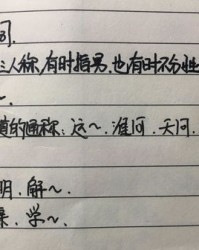 词.
三人称,有时指男,也有时不分性
～.
道的通称:运～.淮河.天河.
明.解～.
集.学～.